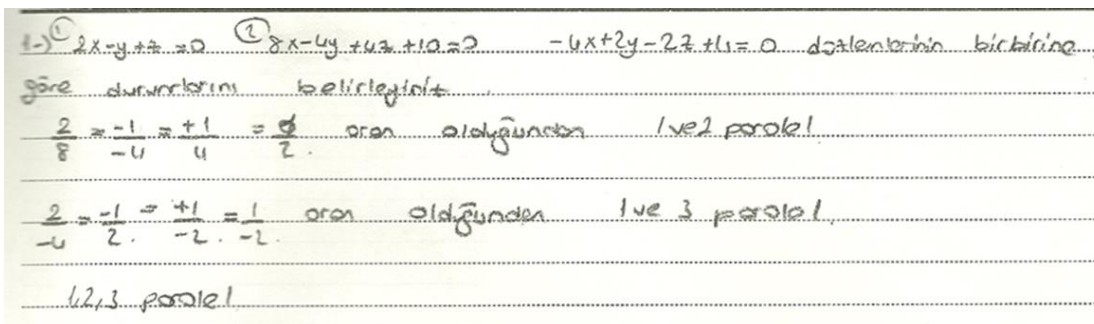 1-) ① 2x-y+z=0 ② 8x-4y+4z+10=0 -4x+2y-2z+4=0 düzlemlerinin birbirine
göre durumlarını belirleyiniz.
2/8 = -1/-4 = +1/4 = oran olduğundan 1 ve 2 paralel
2/-4 = -1/2 = +1/-2 = 1/-2 oran olduğundan 1 ve 3 paralel.
1,2,3 paralel